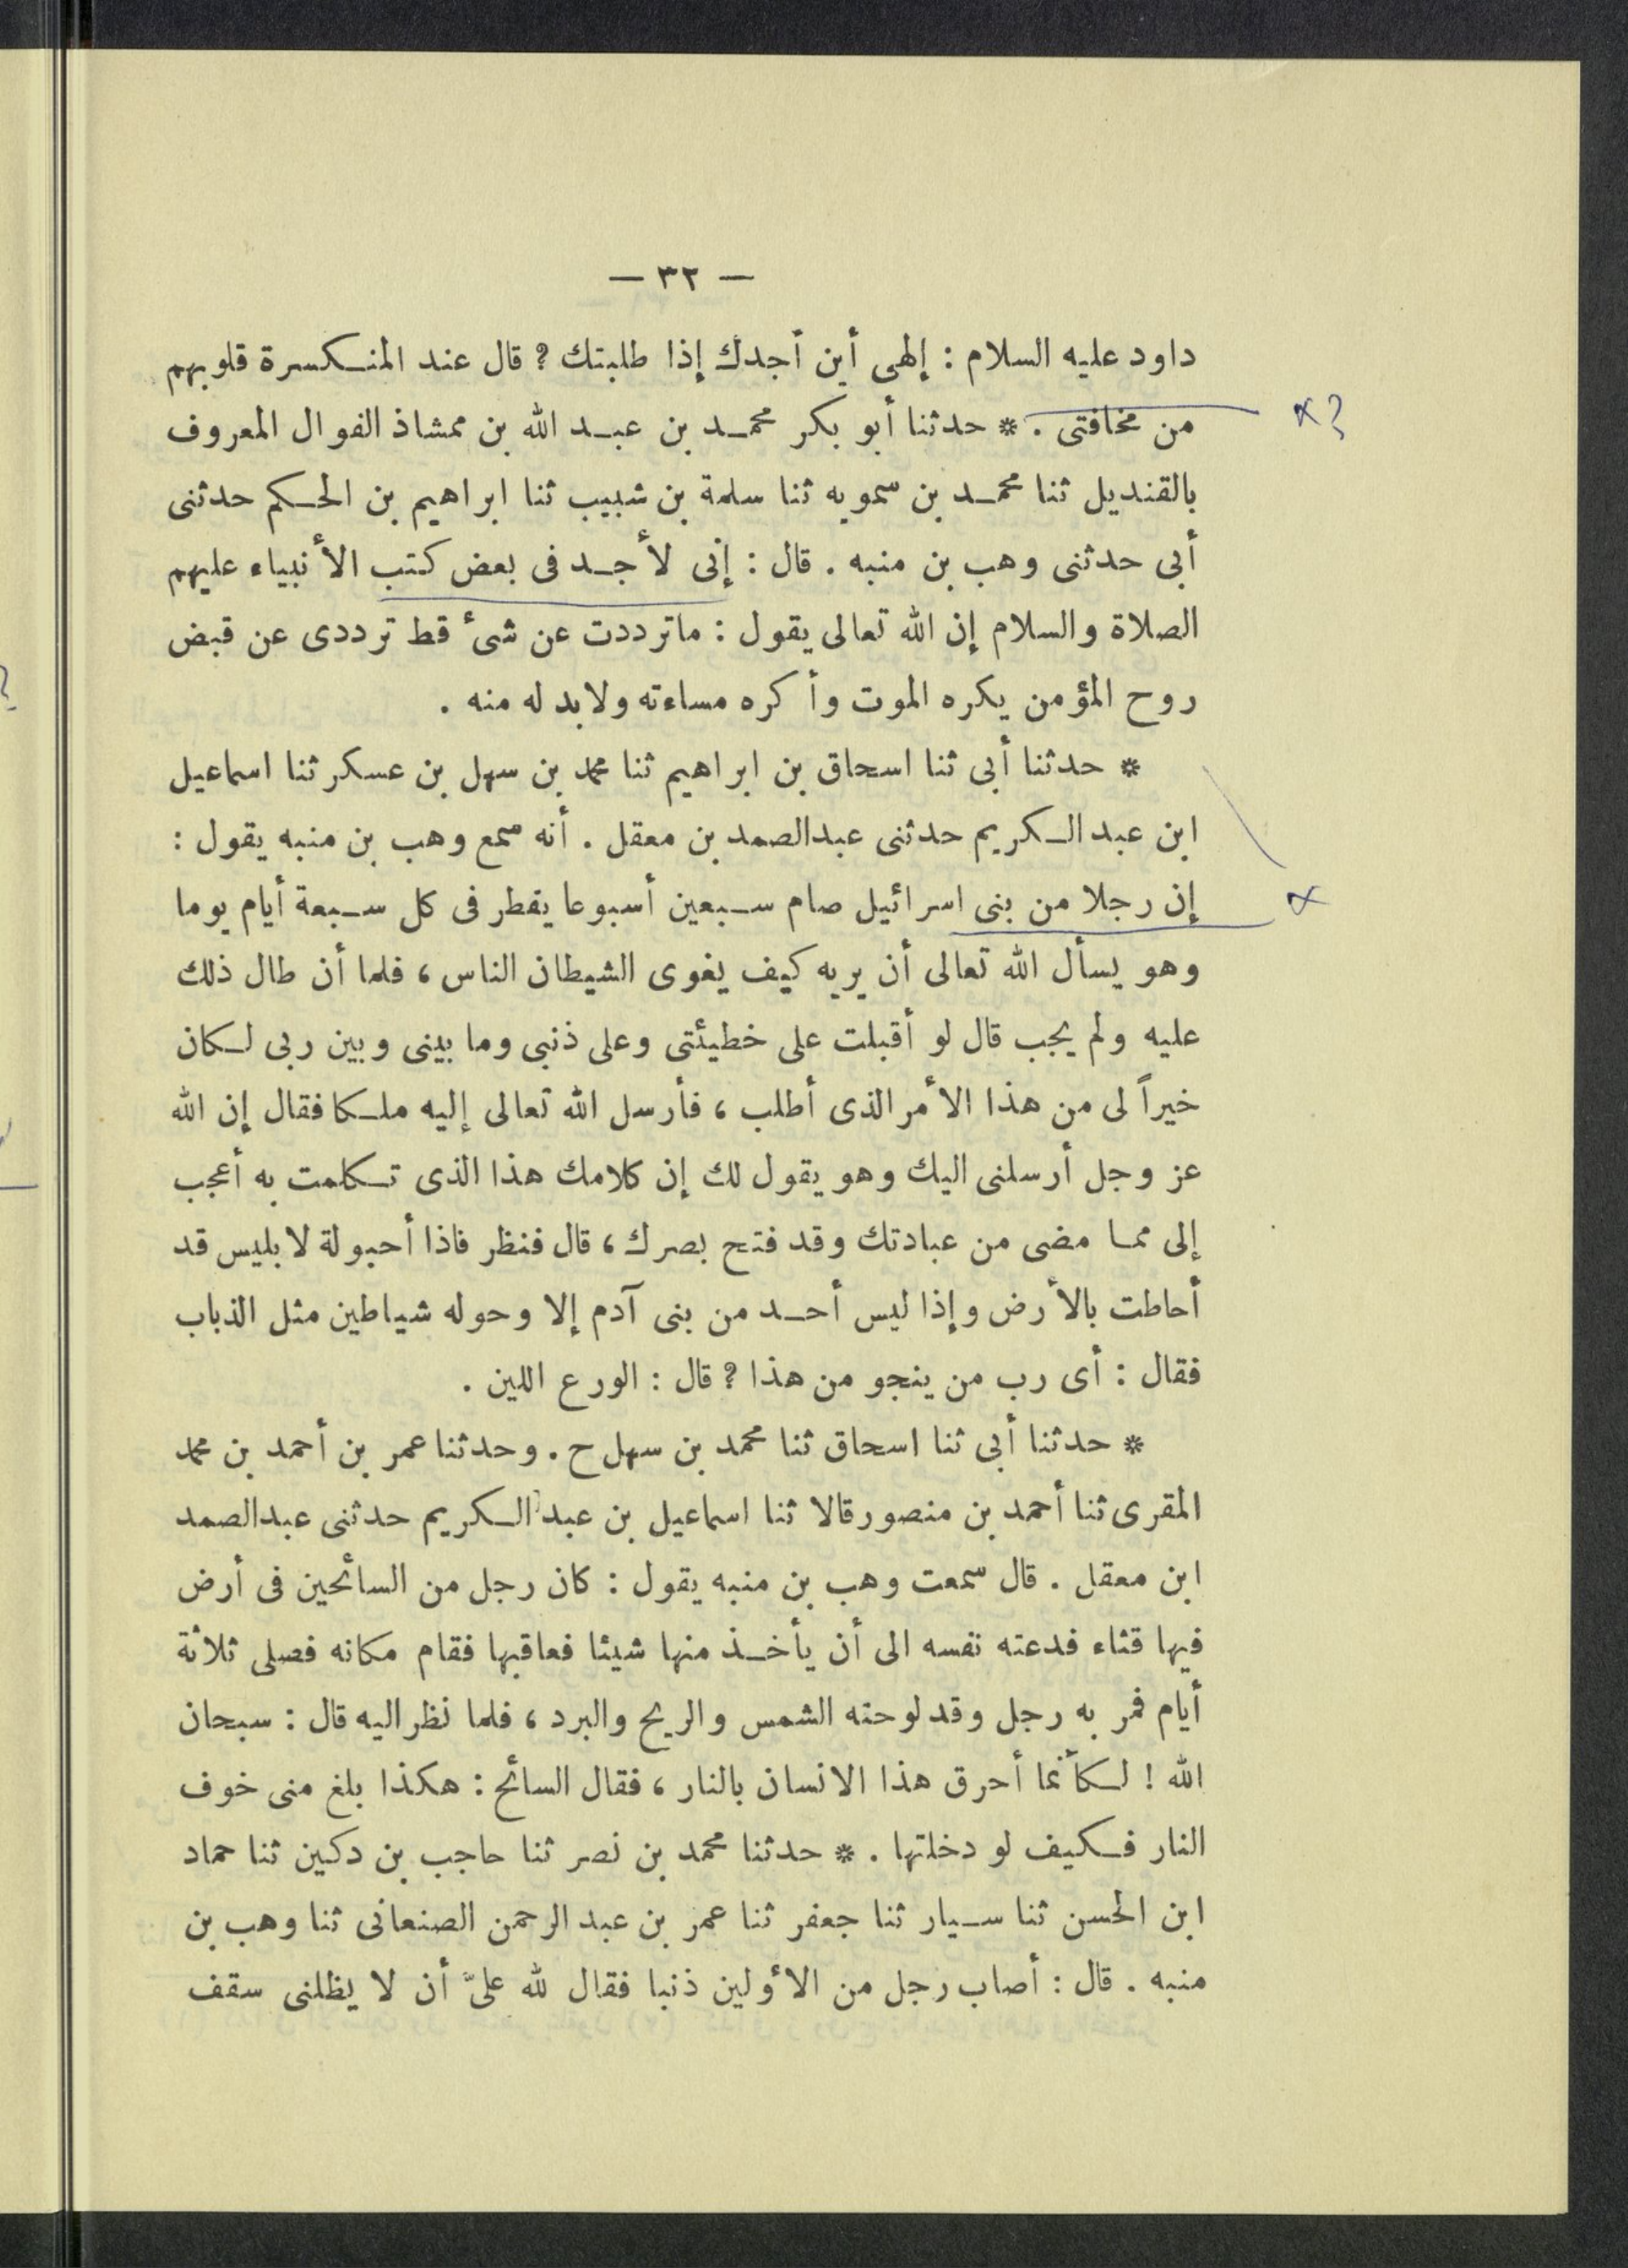 — ٣٢ —
داود عليه السلام : إلهى أين أجدك إذا طلبتك ؟ قال عند المنكسرة قلوبهم
من مخافتى . * حدثنا أبو بكر محمد بن عبد الله بن ممشاذ الفوال المعروف
بالقنديل ثنا محمد بن سمويه ثنا سلمة بن شبيب ثنا ابراهيم بن الحكم حدثنى
أبى حدثنى وهب بن منبه . قال : إنى لأجد فى بعض كتب الأنبياء عليهم
الصلاة والسلام إن الله تعالى يقول : ماترددت عن شىء قط ترددى عن قبض
روح المؤمن يكره الموت وأكره مساءته ولابد له منه .
* حدثنا أبى ثنا اسحاق بن ابراهيم ثنا محمد بن سهل بن عسكر ثنا اسماعيل
ابن عبد الكريم حدثنى عبدالصمد بن معقل . أنه سمع وهب بن منبه يقول :
إن رجلا من بنى اسرائيل صام سبعين أسبوعا يفطر فى كل سبعة أيام يوما
وهو يسأل الله تعالى أن يريه كيف يغوى الشيطان الناس ، فلما أن طال ذلك
عليه ولم يجب قال لو أقبلت على خطيئتى وعلى ذنبى وما بينى وبين ربى لكان
خيراً لى من هذا الأمر الذى أطلب ، فأرسل الله تعالى إليه ملكا فقال إن الله
عز وجل أرسلنى اليك وهو يقول لك إن كلامك هذا الذى تكلمت به أعجب
إلى مما مضى من عبادتك وقد فتح بصرك ، قال فنظر فاذا أحبولة لابليس قد
أحاطت بالأرض وإذا ليس أحد من بنى آدم إلا وحوله شياطين مثل الذباب
فقال : أى رب من ينجو من هذا ؟ قال : الورع اللين .
* حدثنا أبى ثنا اسحاق ثنا محمد بن سهل ح . وحدثنا عمر بن أحمد بن محمد
المقرى ثنا أحمد بن منصور قالا ثنا اسماعيل بن عبد الكريم حدثنى عبدالصمد
ابن معقل . قال سمعت وهب بن منبه يقول : كان رجل من السائحين فى أرض
فيها قثاء فدعته نفسه الى أن يأخذ منها شيئا فعاقبها فقام مكانه فصلى ثلاثة
أيام فمر به رجل وقد لوحته الشمس والريح والبرد ، فلما نظر اليه قال : سبحان
الله ! لكأنما أحرق هذا الانسان بالنار ، فقال السائح : هكذا بلغ منى خوف
النار فكيف لو دخلتها . * حدثنا محمد بن نصر ثنا حاجب بن دكين ثنا حماد
ابن الحسن ثنا سيار ثنا جعفر ثنا عمر بن عبد الرحمن الصنعانى ثنا وهب بن
منبه . قال : أصاب رجل من الأولين ذنبا فقال لله علىَّ أن لا يظلنى سقف